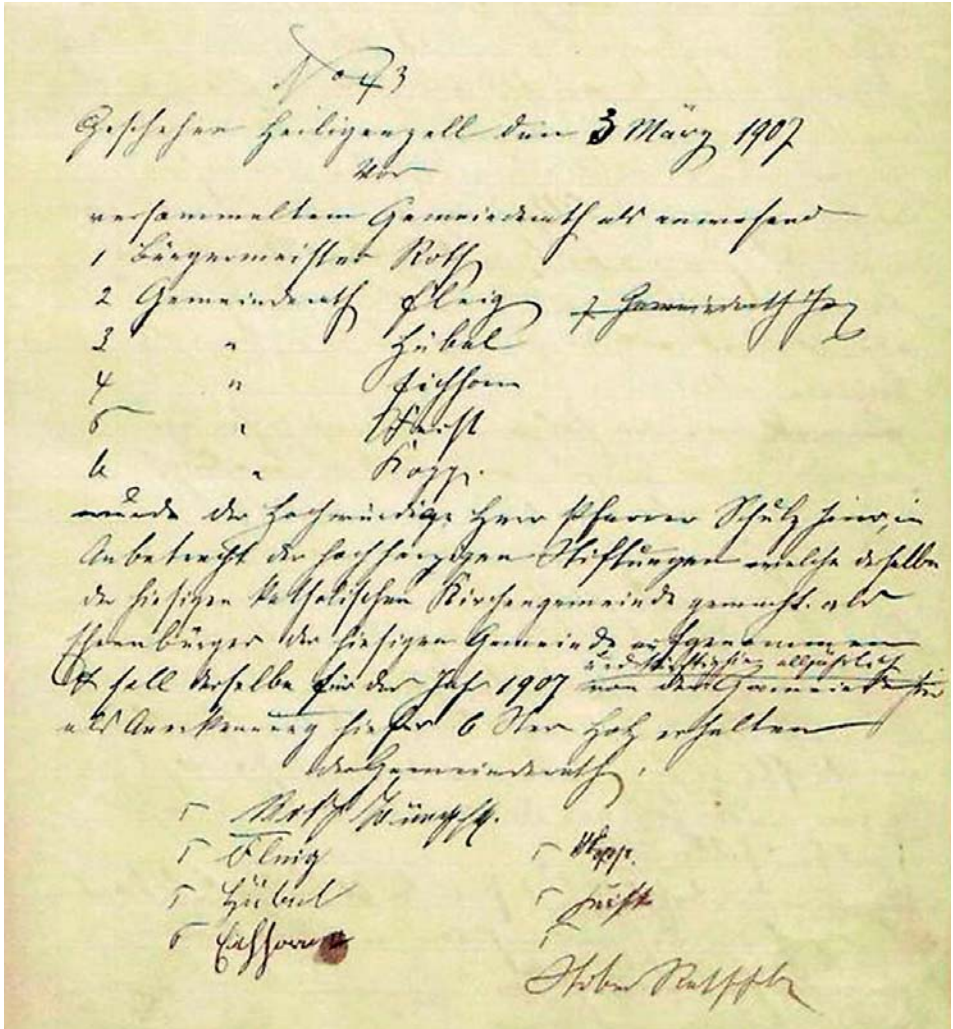 No 43
Geschehen Heiligenzell den 3 März 1907
Vor
versammeltem Gemeinderath als anwesend
1 Bürgermeister Roth
2 Gemeinderath Fleig 7 Gemeinderath
3 " Hübel
4 " Eichhorn
5 " Feist
6 " Kopp.
wurde der Hochwürdige Herr Pfarrer Schulz hier, in
Anbetracht der hochherzigen Stiftungen welche derselbe
der hiesigen katholischen Kirchengemeinde gemacht. als
Ehrenbürger der hiesigen Gemeinde aufgenommen
und alljährlich
Es soll derselbe für das Jahr 1907 von der Gemeinde
als Anerkennung hiefür 6 Ster Holz erhalten
der Gemeinderath,
Roth Bürgstr.
Fleig
Kopp.
Hübel
Feist
Eichhorn
Stober Rathschbr